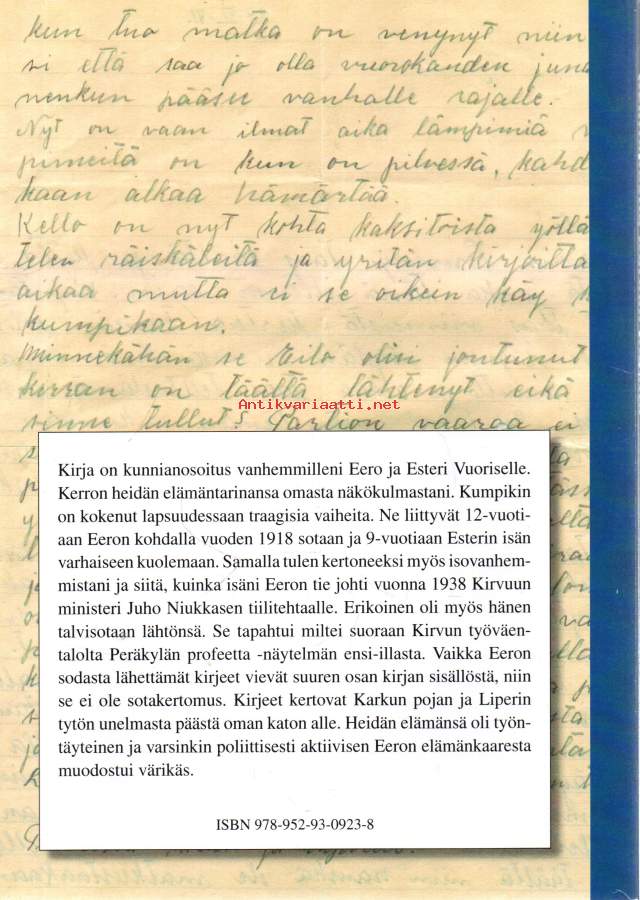 kun tuo matka on venynyt niin
si että saa jo olla vuorokauden juna
nenkun pääsee vanhalle rajalle.
Nyt on vaan ilmat aika lämpimiä
pimeitä on kun on pilvessä, kahd
kaan alkaa hämärtää.
Kello on nyt kohta kaksitoista yöllä
telen räiskäleitä ja yritän kirjoitta
aikaa mutta ei se oikein käy
kumpikaan.
Minnekähän se Eilo olin joutunut
kerran on täältä lähtenyt eikä
Antikvariaatti.net
sinne tullut? Parlion vaaraa ei
Kirja on kunnianosoitus vanhemmilleni Eero ja Esteri Vuoriselle.
Kerron heidän elämäntarinansa omasta näkökulmastani. Kumpikin
on kokenut lapsuudessaan traagisia vaiheita. Ne liittyvät 12-vuoti-
aan Eeron kohdalla vuoden 1918 sotaan ja 9-vuotiaan Esterin isän
varhaiseen kuolemaan. Samalla tulen kertoneeksi myös isovanhem-
mistani ja siitä, kuinka isäni Eeron tie johti vuonna 1938 Kirvuun
ministeri Juho Niukkasen tiilitehtaalle. Erikoinen oli myös hänen
talvisotaan lähtönsä. Se tapahtui miltei suoraan Kirvun työväen-
talolta Peräkylän profeetta -näytelmän ensi-illasta. Vaikka Eeron
sodasta lähettämät kirjeet vievät suuren osan kirjan sisällöstä, niin
se ei ole sotakertomus. Kirjeet kertovat Karkun pojan ja Liperin
tytön unelmasta päästä oman katon alle. Heidän elämänsä oli työn-
täyteinen ja varsinkin poliittisesti aktiivisen Eeron elämänkaaresta
muodostui värikäs.
ISBN 978-952-93-0923-8